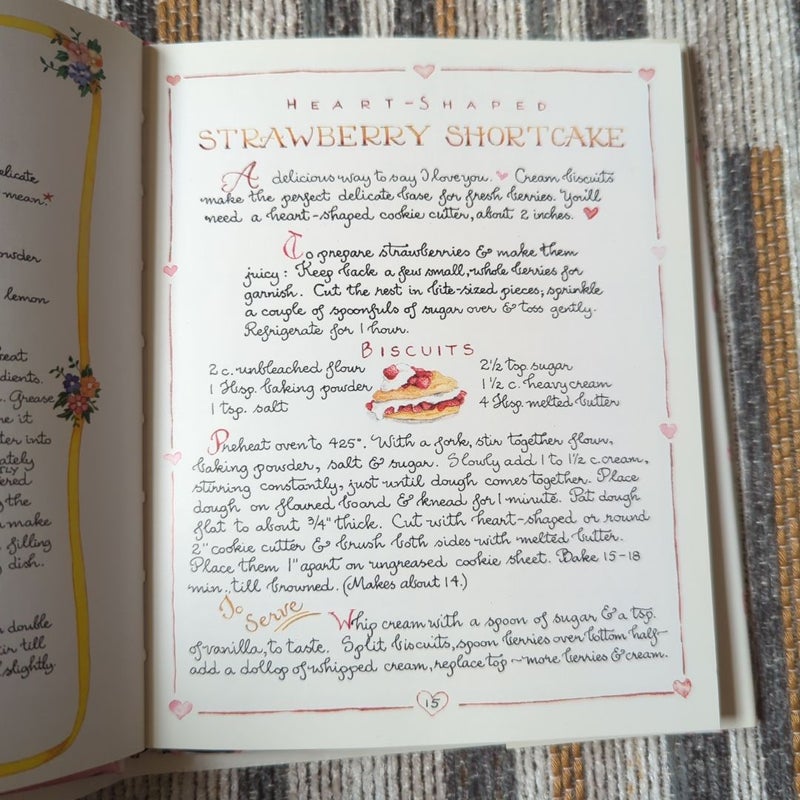 elicate
mean.*
owder
lemon
heat
dients.
Grease
e it
ter into
ately
TLY
ered
g the
make
filling
dish.
double
tir till
slightly
HEART-SHAPED
STRAWBERRY SHORTCAKE
A delicious way to say I love you. Cream biscuits
make the perfect delicate base for fresh berries. You'll
need a heart-shaped cookie cutter, about 2 inches.
To prepare strawberries & make them
juicy: Keep back a few small, whole berries for
garnish. Cut the rest in bite-sized pieces; sprinkle
a couple of spoonfuls of sugar over & toss gently.
Refrigerate for 1 hour.
BISCUITS
2 c. unbleached flour
1 Tbsp. baking powder
1 tsp. salt
2 1/2 tsp. sugar
1 1/2 c. heavy cream
4 Tbsp. melted butter
Preheat oven to 425°. With a fork, stir together flour,
baking powder, salt & sugar. Slowly add 1 to 1 1/2 c. cream,
stirring constantly, just until dough comes together. Place
dough on floured board & knead for 1 minute. Pat dough
flat to about 3/4" thick. Cut with heart-shaped or round
2" cookie cutter & brush both sides with melted butter.
Place them 1" apart on ungreased cookie sheet. Bake 15-18
min., till browned. (Makes about 14.)
To Serve Whip cream with a spoon of sugar & a tsp.
of vanilla, to taste. Split biscuits, spoon berries over bottom half—
add a dollop of whipped cream, replace top ~ more berries & cream.
15